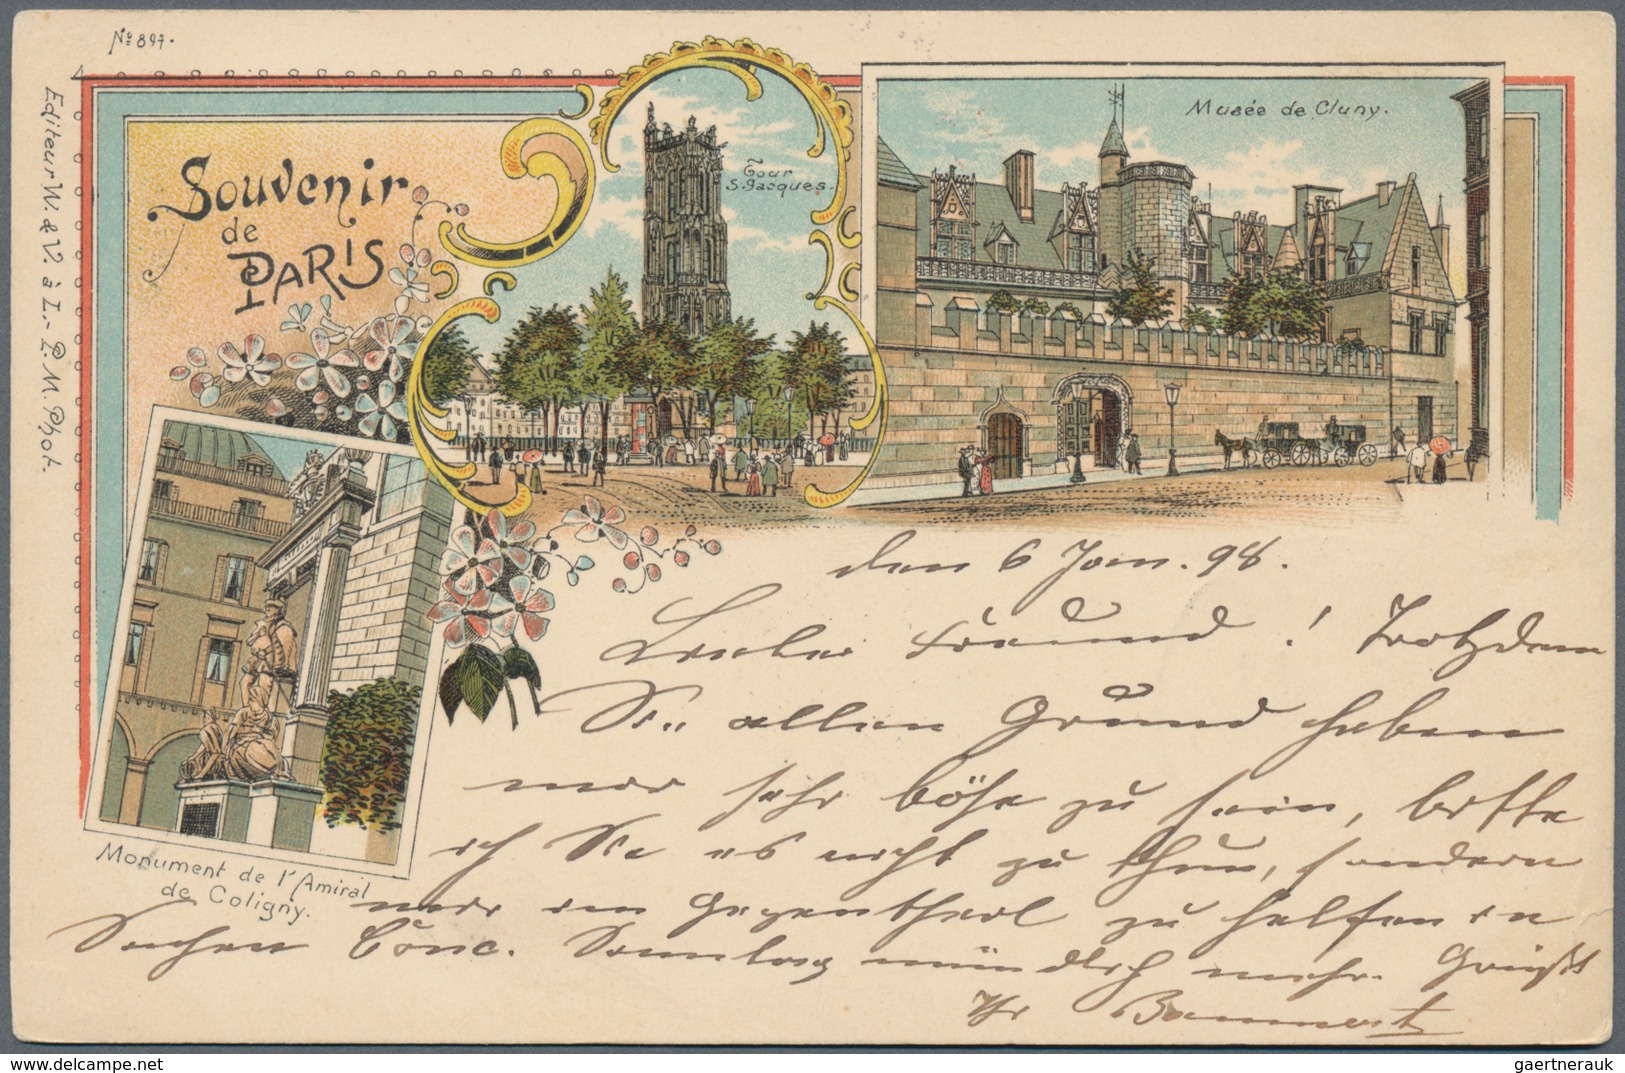 No 897.
Editeur W. & V. à L.- P. M. Phot.
Souvenir
de
PARIS
Tour
S. Jacques.
Musée de Cluny.
Monument de l'Amiral
de Coligny.
den 6 Jan. 98.
Lieber Freund! Trotzdem
Sie allen Grund haben
mir sehr böse zu sein, bitte
ich Sie es nicht zu thun, sondern
mir im Gegentheil zu helfen in
Sachen Conc. Sonntag mündlich mehr. Grüßt
Ihr
Delcampe.net
gaertnerauk